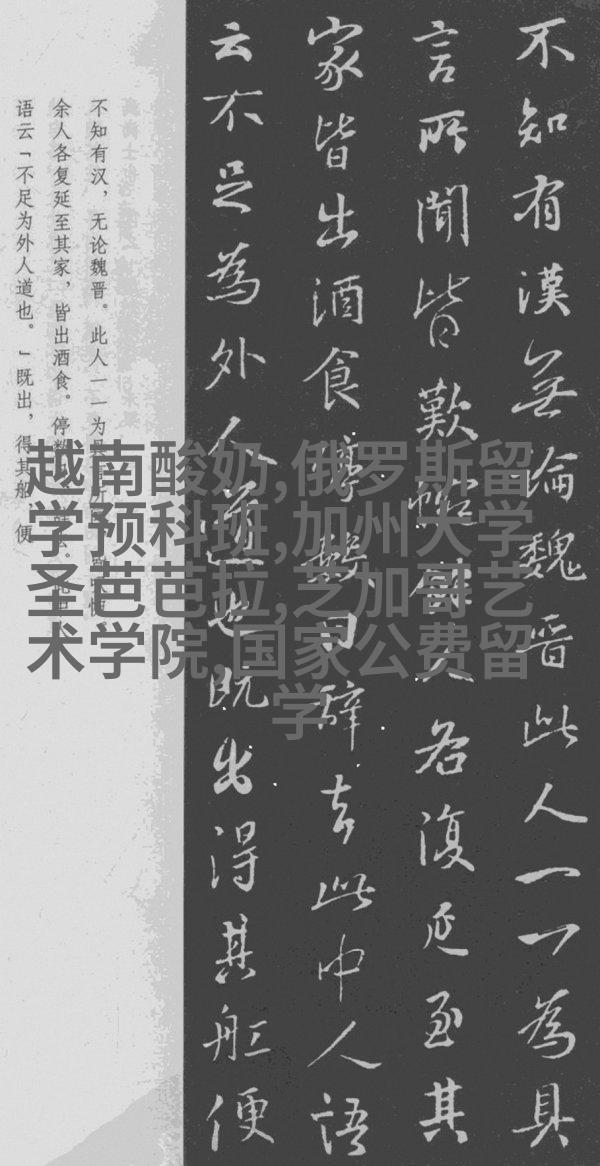 不知有漢無論魏晋此人一一為具
言所聞皆歎惋餘人各復延至其
家皆出酒食停數日辭去此中人語
云不足為外人道也既出得其船便
不知有汉，无论魏晋。此人一一为具
余人各复延至其家，皆出酒食。停数
语云「不足为外人道也。」既出，得其船 便
越南酸奶,俄罗斯留
学预科班,加州大学
圣芭芭芭拉,芝加哥艺
术学院,国家公费留
学